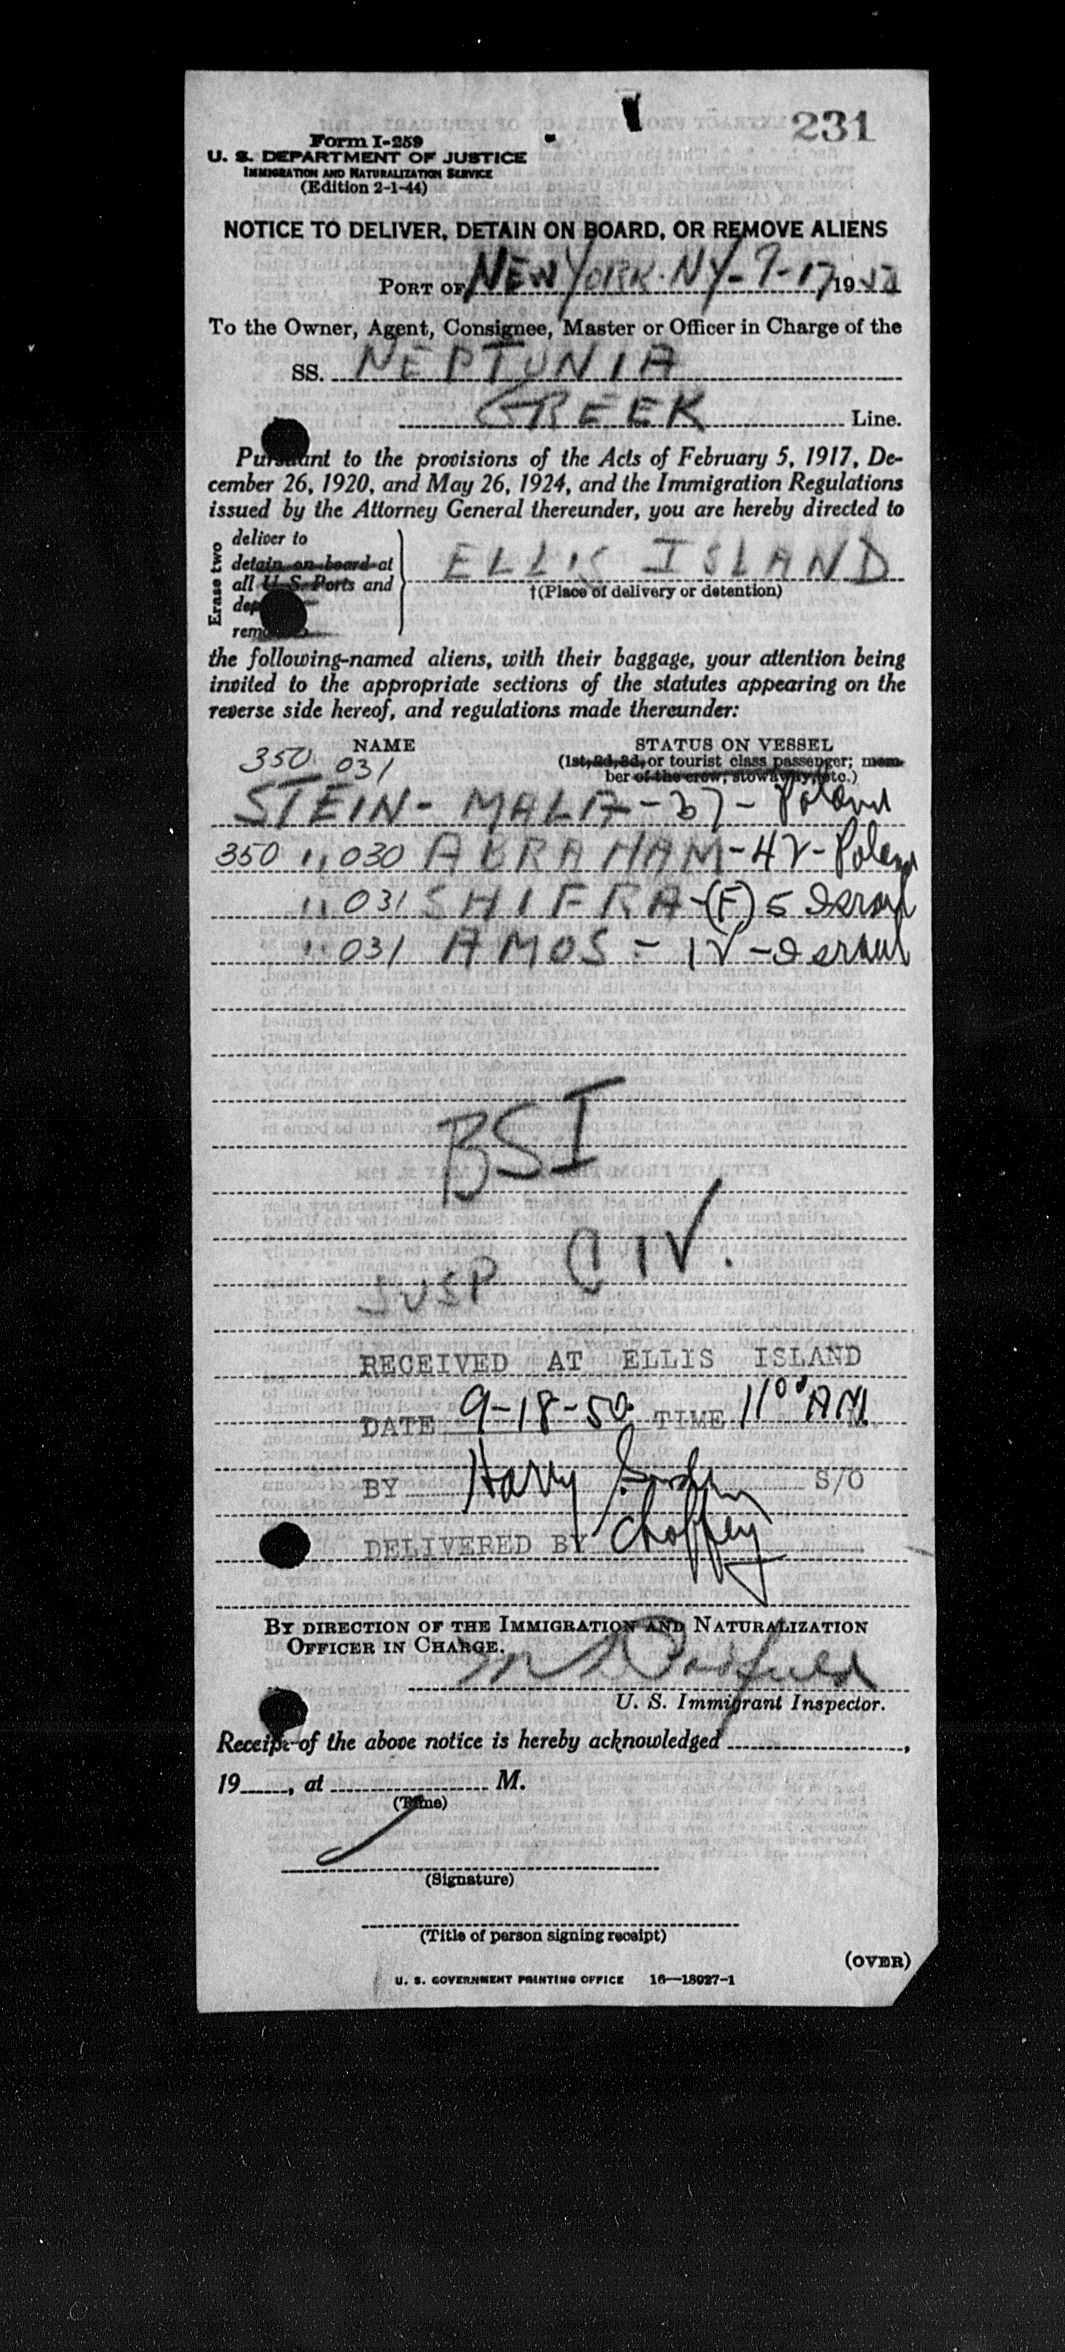 231
Form I-259
U. S. DEPARTMENT OF JUSTICE
IMMIGRATION AND NATURALIZATION SERVICE
(Edition 2-1-44)
NOTICE TO DELIVER, DETAIN ON BOARD, OR REMOVE ALIENS
PORT OF NEW YORK. NY-9-17 1950
To the Owner, Agent, Consignee, Master or Officer in Charge of the
SS. NEPTUNIA
GREEK Line.
Pursuant to the provisions of the Acts of February 5, 1917, De-
cember 26, 1920, and May 26, 1924, and the Immigration Regulations
issued by the Attorney General thereunder, you are hereby directed to
Erase two
deliver to
detain on board at
all U. S. Ports and
ELLIS ISLAND
†(Place of delivery or detention)
the following-named aliens, with their baggage, your attention being
invited to the appropriate sections of the statutes appearing on the
reverse side hereof, and regulations made thereunder:
NAME STATUS ON VESSEL
350 031 (1st, 2d, 3d, or tourist class passenger; mem-
ber of the crew, stowaway, etc.)
STEIN - MALA - 37 - Poland
350 " 030 ABRAHAM - 42 - Poland
" 031 SHIFRA - (F) 5 Israel
" 031 AMOS - 12 - Israel
BSI
SUSP CIV.
RECEIVED AT ELLIS ISLAND
DATE 9-18-50 TIME 11 00 AM.
BY Harry S/O
DELIVERED BY
BY DIRECTION OF THE IMMIGRATION AND NATURALIZATION
OFFICER IN CHARGE.
U. S. Immigrant Inspector.
Receipt of the above notice is hereby acknowledged ,
19 , at M.
(Time)
(Signature)
(Title of person signing receipt)
(OVER)
U. S. GOVERNMENT PRINTING OFFICE 16—18027-1